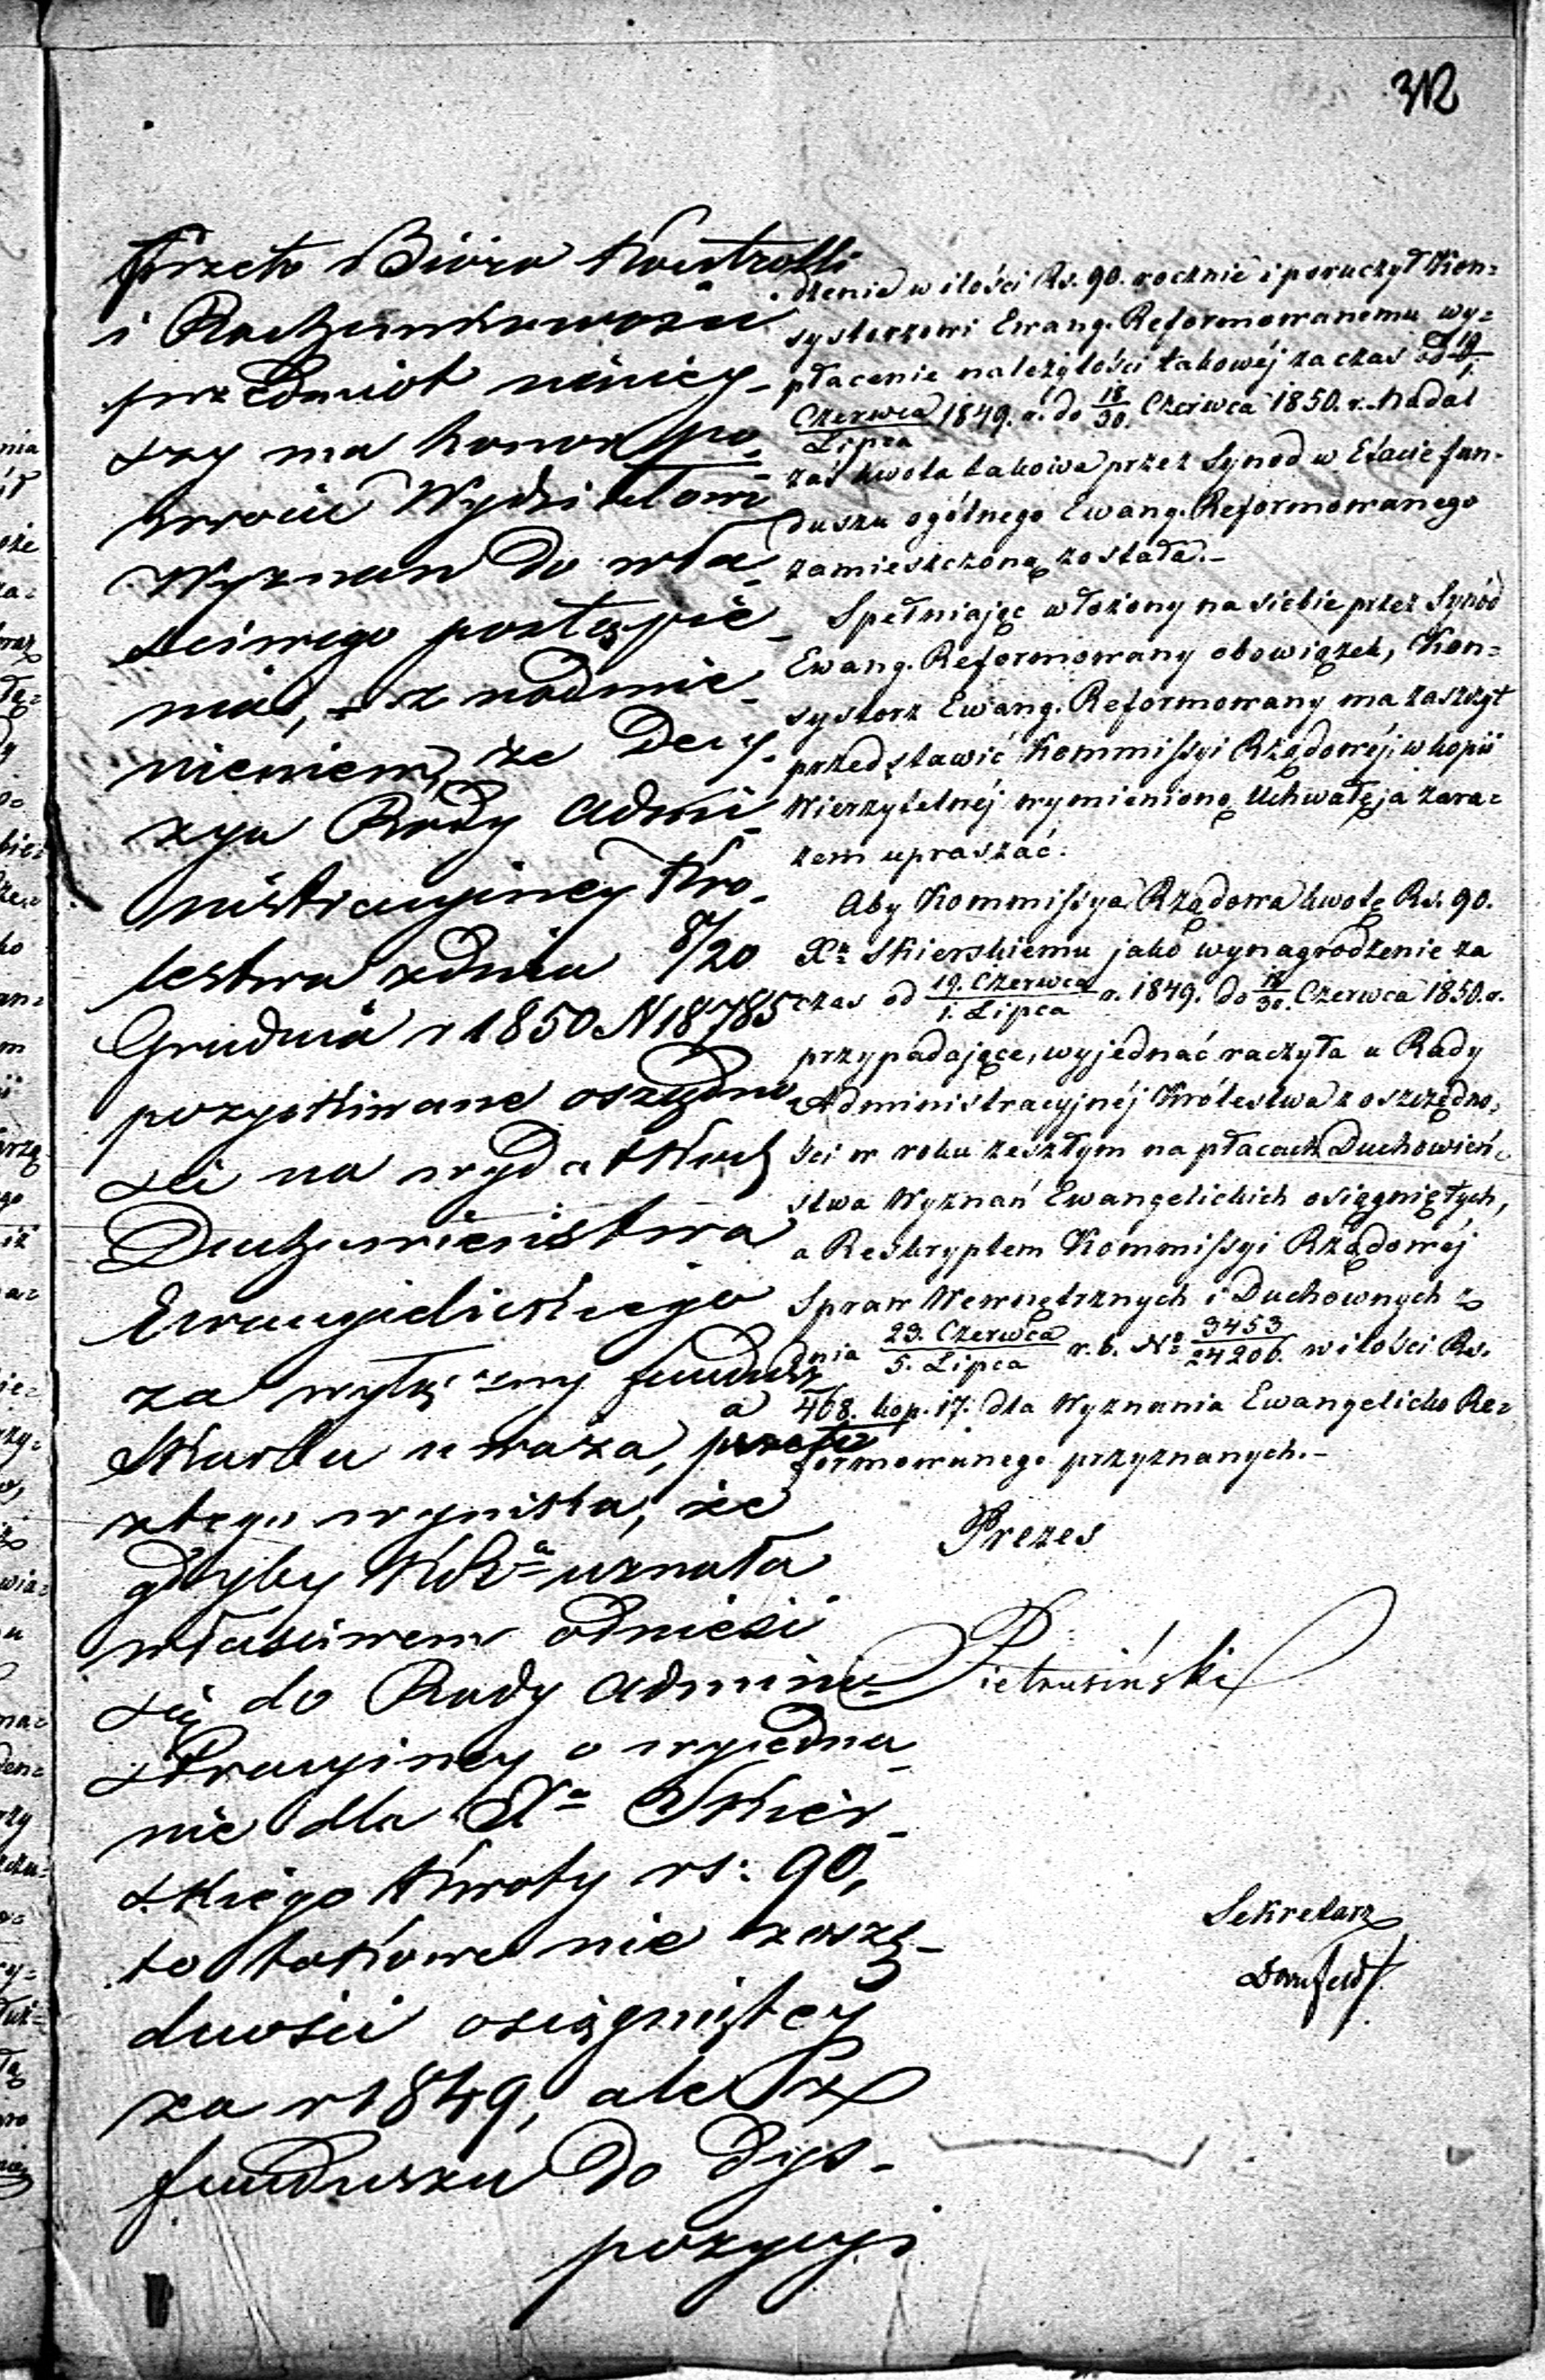 312
Przeto Bióro Kontrolli
i Rachunkowości
przedmiot niniey-
szy ma honor po-
wrócić Wydziałowi
Wyznań do wła-
ściwego postąpie-
nia, z nadmie-
nieniem, że Decy-
zya Rady Admi-
nistracyiney Kró-
lestwa z dnia 8/20
Grudnia r 1850 N 18785
pozyskiwane oszczędno-
ści na wydatkach
Duchowieństwa
Ewangielickiego
za wyłączny fundusz
Skarbu uważa, a
z tego wynika, że
gdyby KRa uznała
właściwem odnieść
się do Rady Admini-
stracyiney o wyjedna-
nie dla Xa Skier-
skiego kwoty rs: 90,
to takowe nie z oszczę-
dności osiągniętey
za r 1849, ale z
funduszu do dys-
pozycyi
dzenie w ilości Rs. 90. rocznie i poruczył Kon=
systorzowi Ewang. Reformowanemu wy=
płacenie należytości takowéj za czas od 19/1.
Czerwca/Lipca 1849. r. do 18/30. Czerwca 1850. r. Nadal
zaś kwota takowa przez Synod w Etacie fun-
duszu ogólnego Ewang. Reformowanego
zamieszczoną została.-
Spełniając włożony na siebie przez Synod
Ewang. Reformowany obowiązek, Kon=
systorz Ewang. Reformowany ma zaszczyt
przedstawić Kommissyi Rządowéj, w kopii
Wierzytelnéj wymienioną Uchwałę, ja zara=
zem upraszać:
Aby Kommissya Rządowa kwotę Rs. 90.
Xu Skierskiemu jako wynagrodzenie za
czas od 19. Czerwca/1. Lipca r. 1849. do 18/30. Czerwca 1850. r.
przypadające, wyjednać raczyła u Rady
Administracyjnéj Królestwa z oszczędno=
ści w roku zeszłym na płacach Duchowień=
stwa Wyznań Ewangelickich osiągniętych,
a Reskryptem Kommissyi Rządowéj
Spraw Wewnętrznych i Duchownych z
dnia 23. Czerwca/5. Lipca r. b. No 3453/24206. w ilości Rs.
468. kop. 17. dla Wyznania Ewangelicko Re=
formowanego przyznanych.-
Prezes
Pietrusiński
Sekretarz